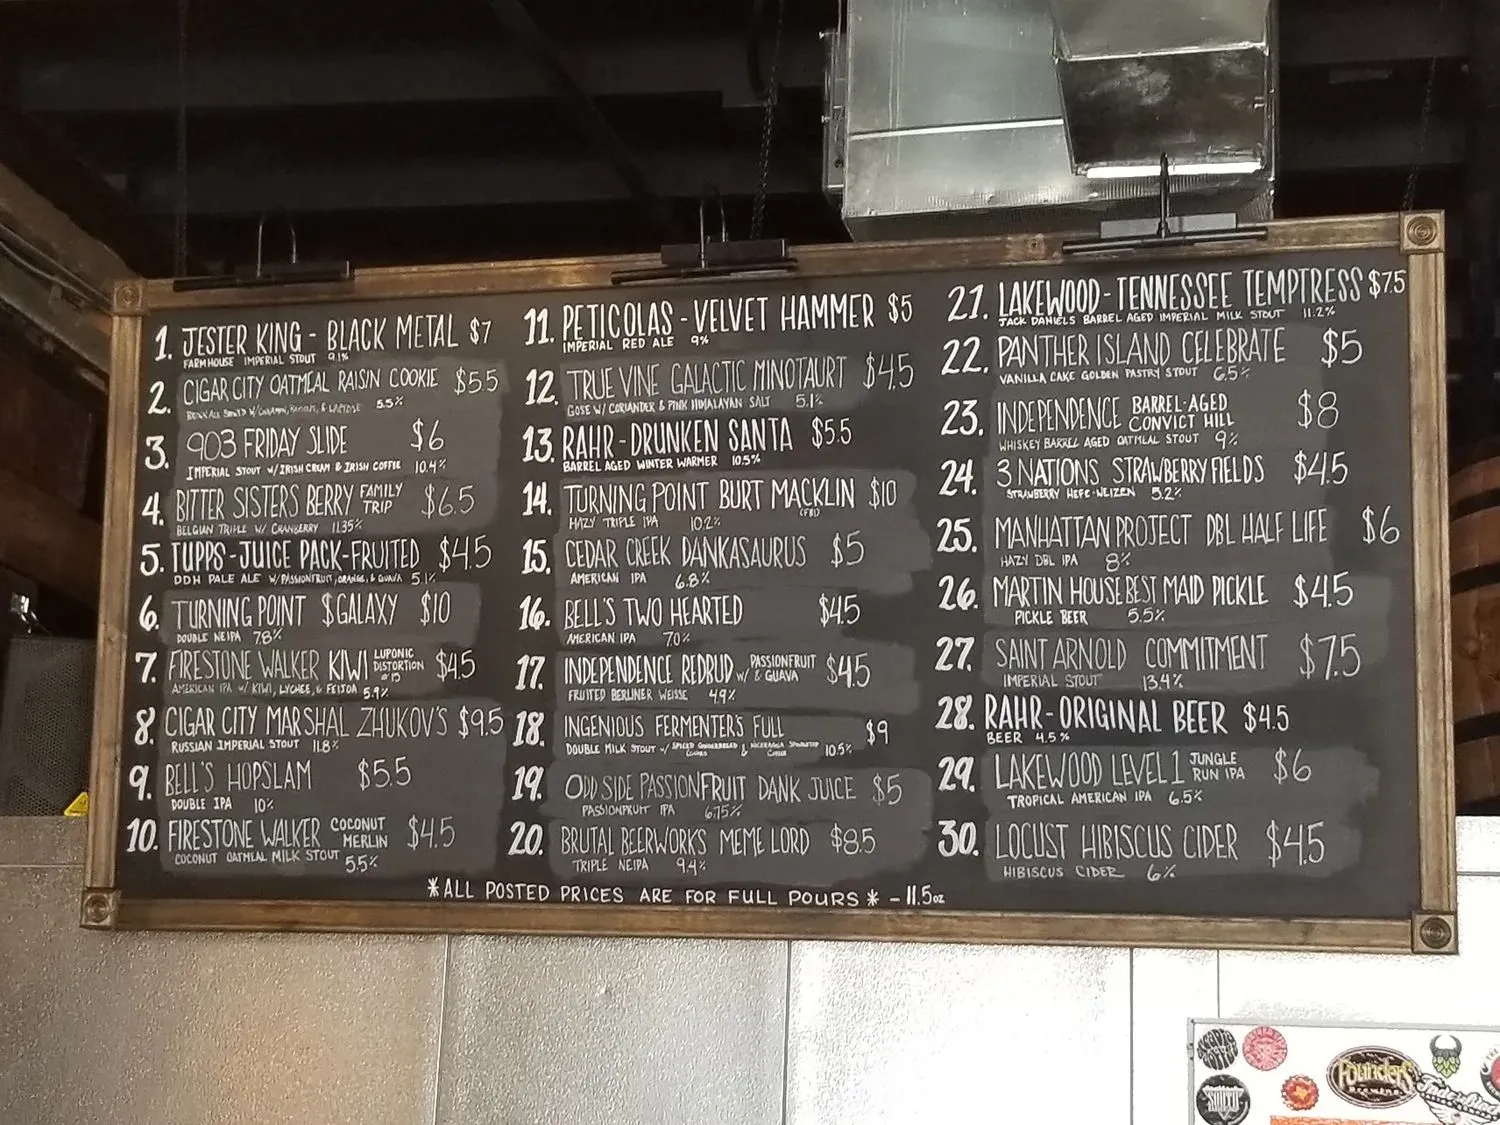 1. JESTER KING - BLACK METAL $7
FARMHOUSE IMPERIAL STOUT 9.1%
2. CIGAR CITY OATMEAL RAISIN COOKIE $5.5
BROWN ALE W/ CINNAMON, RAISINS, & LACTOSE 5.5%
3. 903 FRIDAY SLIDE $6
IMPERIAL STOUT W/ IRISH CREAM & IRISH COFFEE 10.4%
4. BITTER SISTERS BERRY FAMILY TRIP $6.5
BELGIAN TRIPLE W/ CRANBERRY 11.35%
5. TUPPS - JUICE PACK - FRUITED $4.5
DDH PALE ALE W/ PASSIONFRUIT, ORANGE, & GUAVA 5.1%
6. TURNING POINT $GALAXY $10
DOUBLE NEIPA 7.8%
7. FIRESTONE WALKER KIWI LUPONIC DISTORTION #15 $4.5
AMERICAN IPA W/ KIWI, LYCHEE, & FEIJOA 5.9%
8. CIGAR CITY MARSHAL ZHUKOV'S $9.5
RUSSIAN IMPERIAL STOUT 11.8%
9. BELL'S HOPSLAM $5.5
DOUBLE IPA 10%
10. FIRESTONE WALKER COCONUT MERLIN $4.5
COCONUT OATMEAL MILK STOUT 5.5%
11. PETICOLAS - VELVET HAMMER $5
IMPERIAL RED ALE 9%
12. TRUE VINE GALACTIC MINOTAURT $4.5
GOSE W/ CORIANDER & PINK HIMALAYAN SALT 5.1%
13. RAHR - DRUNKEN SANTA $5.5
BARREL AGED WINTER WARMER 10.5%
14. TURNING POINT BURT MACKLIN $10
(FBI)
HAZY TRIPLE IPA 10.2%
15. CEDAR CREEK DANKASAURUS $5
AMERICAN IPA 6.8%
16. BELL'S TWO HEARTED $4.5
AMERICAN IPA 7.0%
17. INDEPENDENCE REDBUD W/ PASSIONFRUIT & GUAVA $4.5
FRUITED BERLINER WEISSE 4.9%
18. INGENIOUS FERMENTER'S FULL $9
DOUBLE MILK STOUT W/ SPICED GINGERBREAD COOKIES & COFFEE 10.5%
19. ODD SIDE PASSIONFRUIT DANK JUICE $5
PASSIONFRUIT IPA 6.75%
20. BRUTAL BEERWORKS MEME LORD $8.5
TRIPLE NEIPA 9.4%
21. LAKEWOOD - TENNESSEE TEMPTRESS $7.5
JACK DANIELS BARREL AGED IMPERIAL MILK STOUT 11.2%
22. PANTHER ISLAND CELEBRATE $5
VANILLA CAKE GOLDEN PASTRY STOUT 6.5%
23. INDEPENDENCE BARREL-AGED CONVICT HILL $8
WHISKEY BARREL AGED OATMEAL STOUT 9%
24. 3 NATIONS STRAWBERRY FIELDS $4.5
STRAWBERRY HEFE-WEIZEN 5.2%
25. MANHATTAN PROJECT DBL HALF LIFE $6
HAZY DBL IPA 8%
26. MARTIN HOUSE BEST MAID PICKLE $4.5
PICKLE BEER 5.5%
27. SAINT ARNOLD COMMITMENT $7.5
IMPERIAL STOUT 13.4%
28. RAHR - ORIGINAL BEER $4.5
BEER 4.5%
29. LAKEWOOD LEVEL 1 JUNGLE RUN IPA $6
TROPICAL AMERICAN IPA 6.5%
30. LOCUST HIBISCUS CIDER $4.5
HIBISCUS CIDER 6%
*ALL POSTED PRICES ARE FOR FULL POURS* - 11.5oz
FOUNDERS